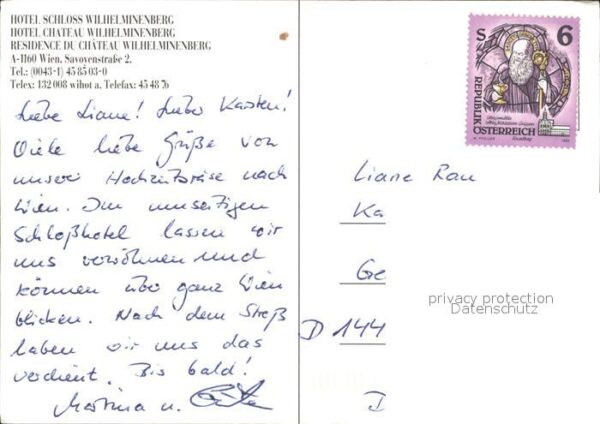 HOTEL SCHLOSS WILHELMINENBERG
HOTEL CHATEAU WILHELMINENBERG
RESIDENCE DU CHÂTEAU WILHELMINENBERG
A-1160 Wien, Savoyenstraße 2.
Tel.: (0043-1) 45 85 03-0
Telex: 132 008 wihot a, Telefax: 45 48 76
Liebe Liane! Lieber Karsten!
Viele liebe Grüße von
unserer Hochzeitsreise nach
Wien. Im umseitigen
Schloßhotel lassen wir
uns verwöhnen und
können über ganz Wien
blicken. Nach dem Streß
haben wir uns das
verdient. Bis bald!
Martina u.
S 6
REPUBLIK
ÖSTERREICH
Liane Rau
Ka
Ge
D 144
D
privacy protection
Datenschutz